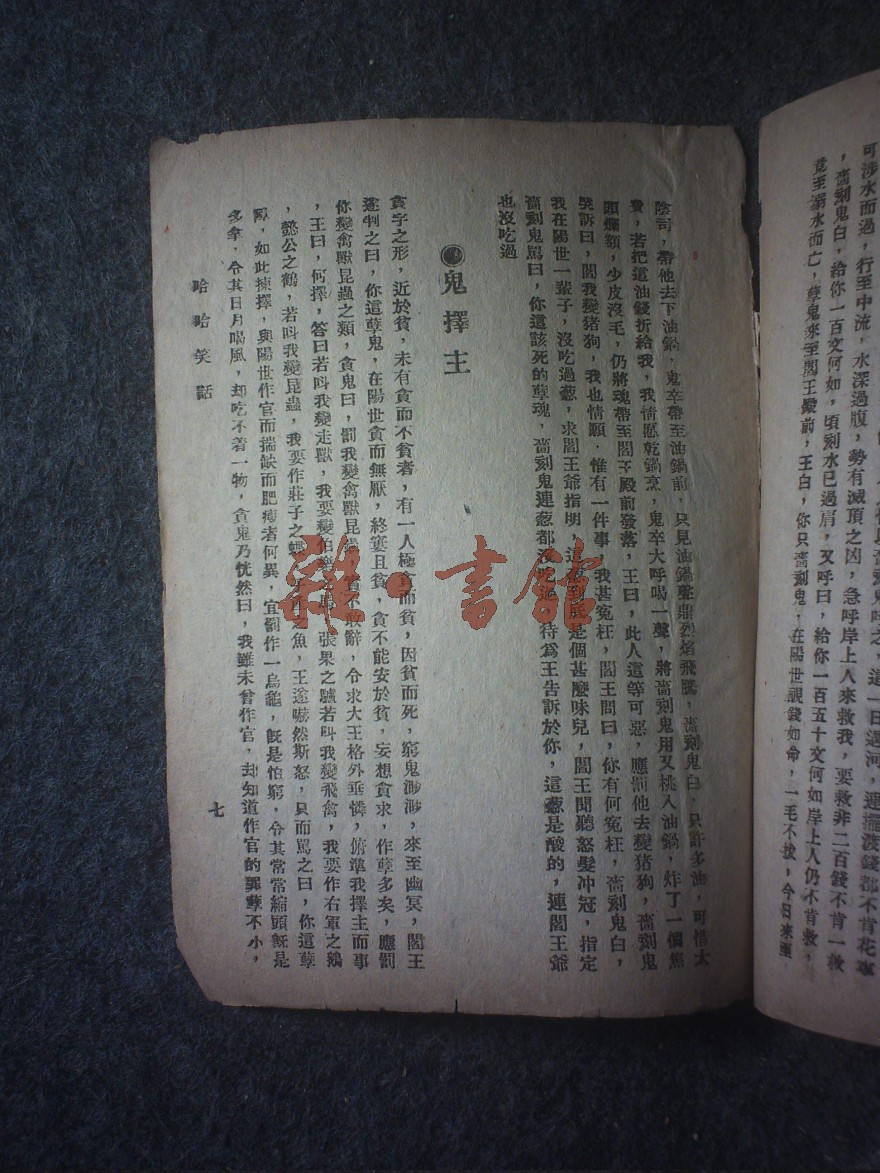 可涉水而過，行至中流，水深過腹，勢有滅頂之凶，急呼岸上人來救我，要救非二百錢不肯一救
，嗇刻鬼白，給你一百文何如，頃刻水已過肩，又呼曰，給你一百五十文何如岸上人仍不肯救，
竟至溺水而亡，孽鬼來至閻王殿前，王白，你只嗇刻鬼，在陽世視錢如命，一毛不拔，今日來至
陰司，帶他去下油鍋，鬼卒帶至油鍋前，只見油鍋鼎烈焰飛騰，嗇刻鬼白，只許多油，可惜太
費，若把這油錢折給我，我情愿乾鍋烹，鬼卒大呼喝一聲，將嗇刻鬼用叉桃入油鍋，炸了一個焦
頭爛額，少皮沒毛，仍將魂帶至閻王殿前發落，王曰，此人這等可惡，應罰他去變猪狗，嗇刻鬼
哭訴曰，閻我變猪狗，我也情願，惟有一件事，我甚冤枉，閻王問曰，你有何冤枉，嗇刻鬼白，
我在陽世一輩子，沒吃過葱，求閻王爺指明，這葱到底是個甚麼味兒，閻王聞聽怒髮冲冠，指定
嗇刻鬼罵曰，你這該死的孽魂，嗇刻鬼連葱都沒，待爲王告訴於你，這葱是酸的，連閻王爺
也沒吃過
●鬼擇主
貪字之形，近於貧，未有貪而不貧者，有一人極貪而貧，因貧而死，窮鬼渺渺，來至幽冥，閻王
遂判之曰，你這孽鬼，在陽世貪而無厭，終窶且貧，貪不能安於貧，妄想貪求，作孽多矣，應罰
你變禽獸昆蟲之類，貪鬼曰，罰我變禽獸昆蟲，不敢辭，今求大王格外垂憐，俯準我擇主而事
，王曰，何擇，答曰若叫我變走獸，我要變伯樂之馬，張果之驢若叫我變飛禽，我要作右軍之鵝
，懿公之鶴，若叫我變昆蟲，我要作莊子之蝶，之魚，王遂嚇然斯怒，只而罵之曰，你這孽
歐，如此揀擇，與陽世作官而揣缺而肥瘦者何異，宜罰作一烏龜，旣是怕窮，令其常常縮頭旣是
多拿，令其日月喝風，却吃不着一物，貪鬼乃恍然曰，我雖未曾作官，却知道作官的罪孽不小，
哈哈笑話
七
雜·書館